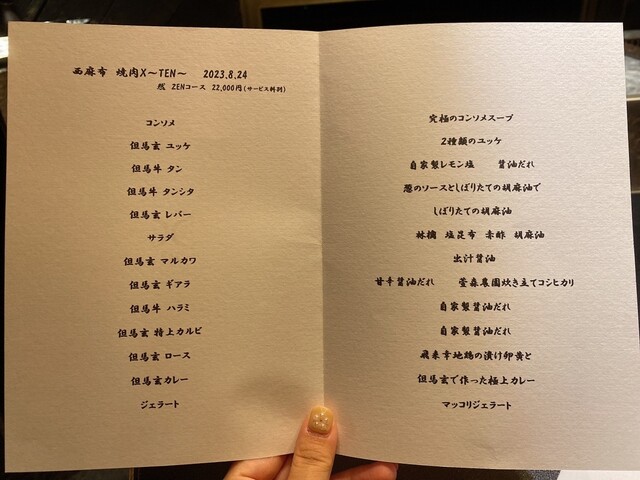 西麻布 焼肉X～TEN～ 2023.8.24
然 ZENコース 22,000円(サービス料別)
コンソメ
但馬玄 ユッケ
但馬牛 タン
但馬牛 タンシタ
但馬玄 レバー
サラダ
但馬玄 マルカワ
但馬玄 ギアラ
但馬牛 ハラミ
但馬玄 特上カルビ
但馬玄 ロース
但馬玄カレー
ジェラート
究極のコンソメスープ
2種類のユッケ
自家製レモン塩 醤油だれ
葱のソースとしぼりたての胡麻油で
しぼりたての胡麻油
林檎 塩昆布 赤酢 胡麻油
出汁醤油
甘辛醤油だれ 萱森農園炊き立てコシヒカリ
自家製醤油だれ
自家製醤油だれ
飛来幸地鶏の漬け卵黄と
但馬玄で作った極上カレー
マッコリジェラート